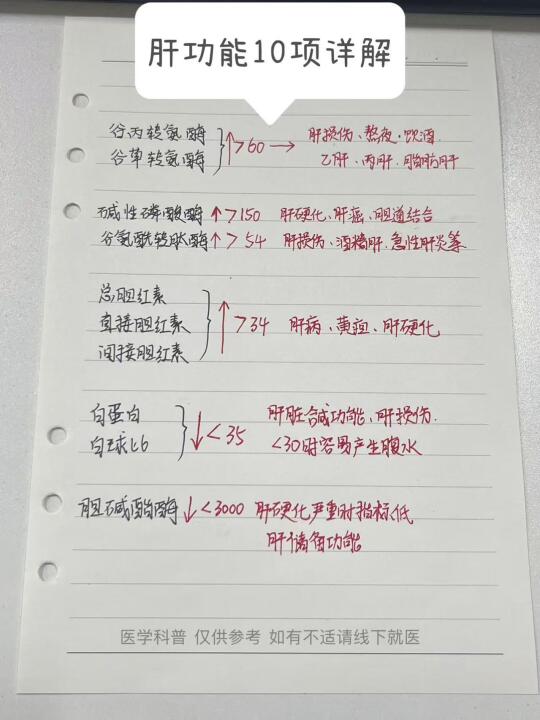 肝功能10项详解
谷丙转氨酶
谷草转氨酶
↑>60 → 肝损伤、熬夜、饮酒
乙肝、丙肝、脂肪肝
碱性磷酸酶 ↑>150 肝硬化、肝癌、胆道结合
谷氨酰转肽酶 ↑>54 肝损伤、酒精肝、急性肝炎等
总胆红素
直接胆红素
间接胆红素
↑>34 肝病、黄疸、肝硬化
白蛋白
白球比
↓<35 肝脏合成功能、肝损伤.
<30时容易产生腹水
胆碱酯酶 ↓<3000 肝硬化严重时指标低
肝储备功能
医学科普 仅供参考 如有不适请线下就医